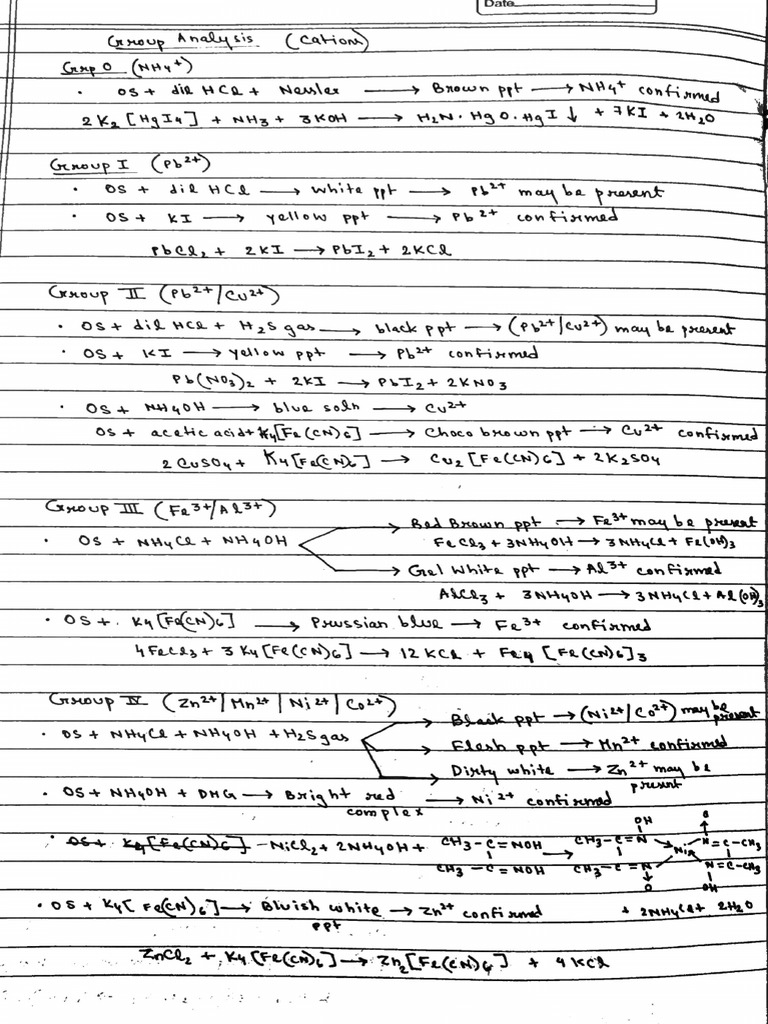 Date
Group Analysis (Cations)
Grp 0 (NH4+)
• OS + dil HCl + Nessler → Brown ppt → NH4+ confirmed
2K2[HgI4] + NH3 + 3KOH → H2N·HgO·HgI ↓ + 7KI + 2H2O
Group I (Pb2+)
• OS + dil HCl → white ppt → Pb2+ may be present
• OS + KI → yellow ppt → Pb2+ confirmed
PbCl2 + 2KI → PbI2 + 2KCl
Group II (Pb2+/Cu2+)
• OS + dil HCl + H2S gas → black ppt → (Pb2+/Cu2+) may be present
• OS + KI → yellow ppt → Pb2+ confirmed
Pb(NO3)2 + 2KI → PbI2 + 2KNO3
• OS + NH4OH → blue soln → Cu2+
OS + acetic acid + K4[Fe(CN)6] → Choco brown ppt → Cu2+ confirmed
2CuSO4 + K4[Fe(CN)6] → Cu2[Fe(CN)6] + 2K2SO4
Group III (Fe3+/Al3+)
• OS + NH4Cl + NH4OH → Red Brown ppt → Fe3+ may be present
FeCl3 + 3NH4OH → 3NH4Cl + Fe(OH)3
→ Gel White ppt → Al3+ confirmed
AlCl3 + 3NH4OH → 3NH4Cl + Al(OH)3
• OS + K4[Fe(CN)6] → Prussian blue → Fe3+ confirmed
4FeCl3 + 3K4[Fe(CN)6] → 12KCl + Fe4[Fe(CN)6]3
Group IV (Zn2+/Mn2+/Ni2+/Co2+)
• OS + NH4Cl + NH4OH + H2S gas → Black ppt → (Ni2+/Co2+) may be present
→ Flesh ppt → Mn2+ confirmed
→ Dirty white → Zn2+ may be present
• OS + NH4OH + DMG → Bright red complex → Ni2+ confirmed
• OS + K4[Fe(CN)6] - NiCl2 + 2NH4OH + CH3-C=NOH CH3-C=NOH → CH3-C=N OH CH3-C=N O Ni N=C-CH3 O N=C-CH3 OH
+ 2NH4Cl + 2H2O
• OS + K4[Fe(CN)6] → Bluish white ppt → Zn2+ confirmed
ZnCl2 + K4[Fe(CN)6] → Zn2[Fe(CN)6] + 4KCl